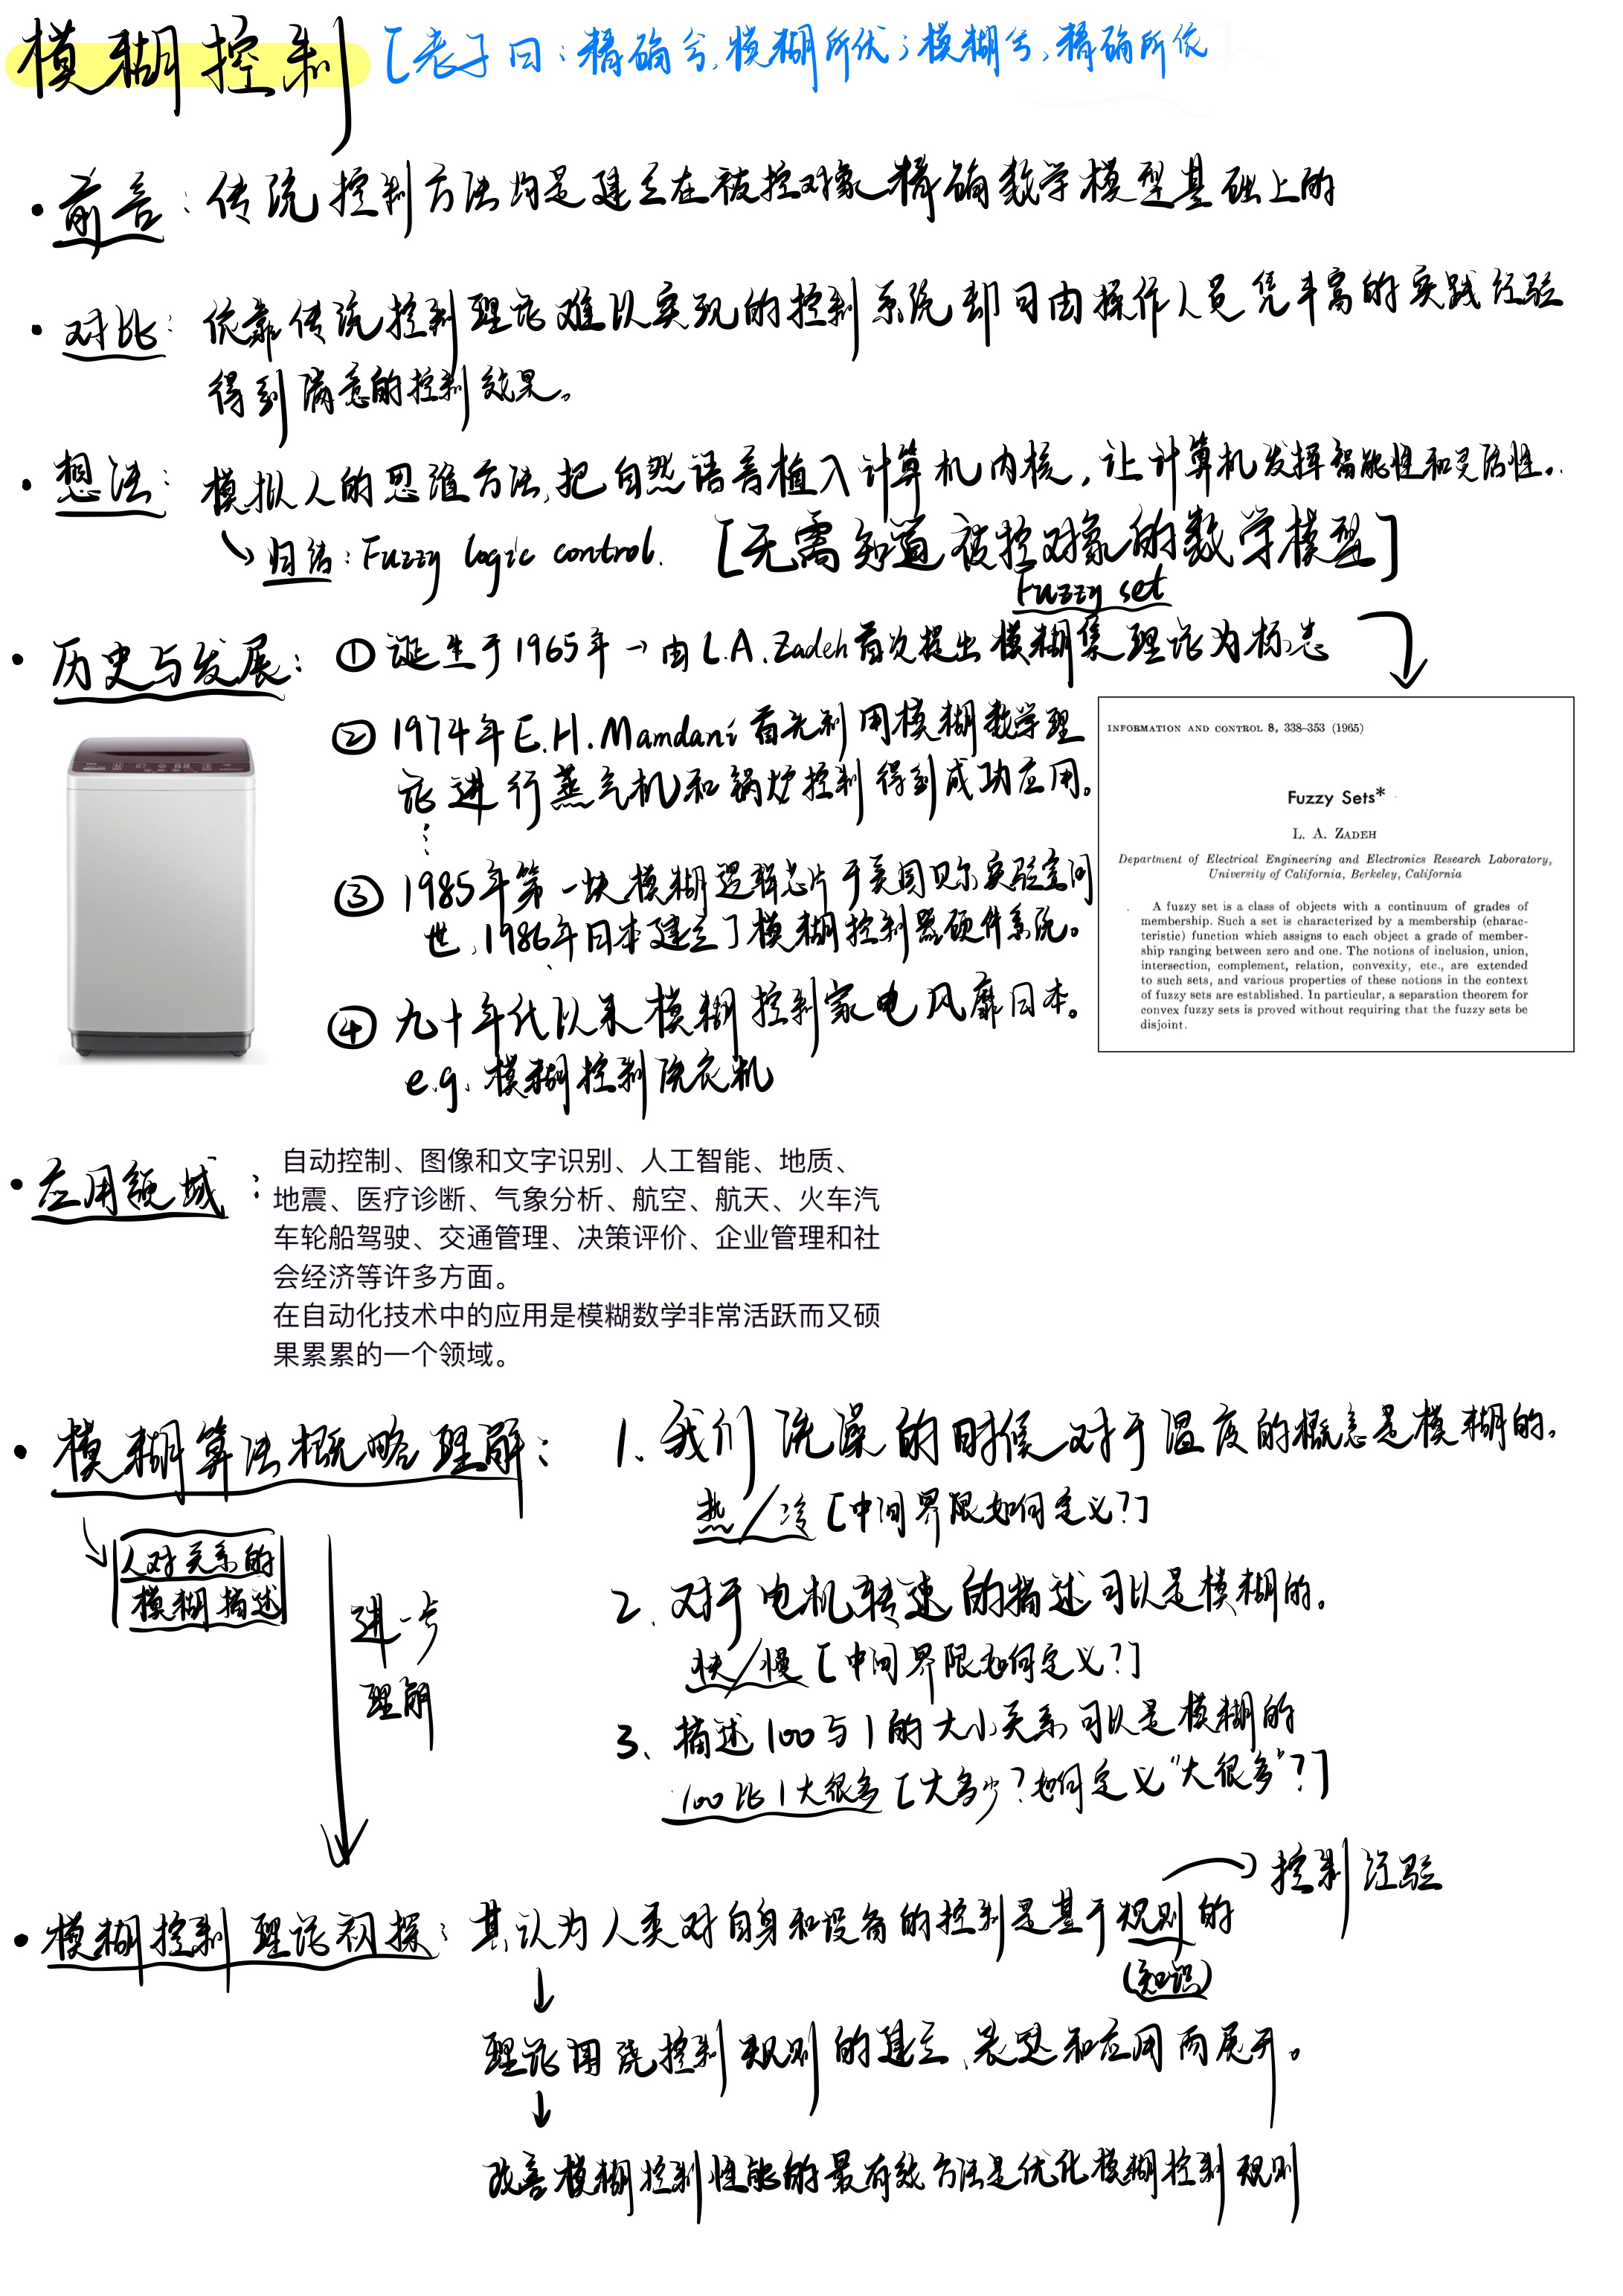 模糊控制 [老子曰：精确兮，模糊所伏；模糊兮，精确所依
• 前言：传统控制方法均是建立在被控对象精确数学模型基础上的
• 对比：依靠传统控制理论难以实现的控制系统却可由操作人员凭丰富的实践经验
得到满意的控制效果。
• 想法：模拟人的思维方法，把自然语言植入计算机内核，让计算机发挥智能性和灵活性。
归结：Fuzzy logic control. [无需知道被控对象的数学模型]
Fuzzy set
• 历史与发展：① 诞生于1965年→由L.A.Zadeh首次提出模糊集理论为标志
② 1974年E.H.Mamdani首先利用模糊数学理
论进行蒸气机和锅炉控制得到成功应用。
③ 1985年第一块模糊逻辑芯片于美国贝尔实验室问
世，1986年日本建立了模糊控制器硬件系统。
④ 九十年代以来模糊控制家电风靡日本。
e.g. 模糊控制洗衣机
INFORMATION AND CONTROL 8, 338–353 (1965)
Fuzzy Sets*
L. A. ZADEH
Department of Electrical Engineering and Electronics Research Laboratory,
University of California, Berkeley, California
A fuzzy set is a class of objects with a continuum of grades of
membership. Such a set is characterized by a membership (charac-
teristic) function which assigns to each object a grade of member-
ship ranging between zero and one. The notions of inclusion, union,
intersection, complement, relation, convexity, etc., are extended
to such sets, and various properties of these notions in the context
of fuzzy sets are established. In particular, a separation theorem for
convex fuzzy sets is proved without requiring that the fuzzy sets be
disjoint.
• 应用领域：
自动控制、图像和文字识别、人工智能、地质、
地震、医疗诊断、气象分析、航空、航天、火车汽
车轮船驾驶、交通管理、决策评价、企业管理和社
会经济等许多方面。
在自动化技术中的应用是模糊数学非常活跃而又硕
果累累的一个领域。
• 模糊算法概略理解：
人对关系的
模糊描述
进一步
理解
1. 我们洗澡的时候对于温度的概念是模糊的。
热/冷 [中间界限如何定义?]
2. 对于电机转速的描述可以是模糊的。
快/慢 [中间界限如何定义?]
3、描述100与1的大小关系可以是模糊的
100比1大很多 [大多少?如何定义“大很多”?]
控制经验
• 模糊控制理论初探：其认为人类对自身和设备的控制是基于规则的
(知识)
理论围绕控制规则的建立、表达和应用而展开。
改善模糊控制性能的最有效方法是优化模糊控制规则